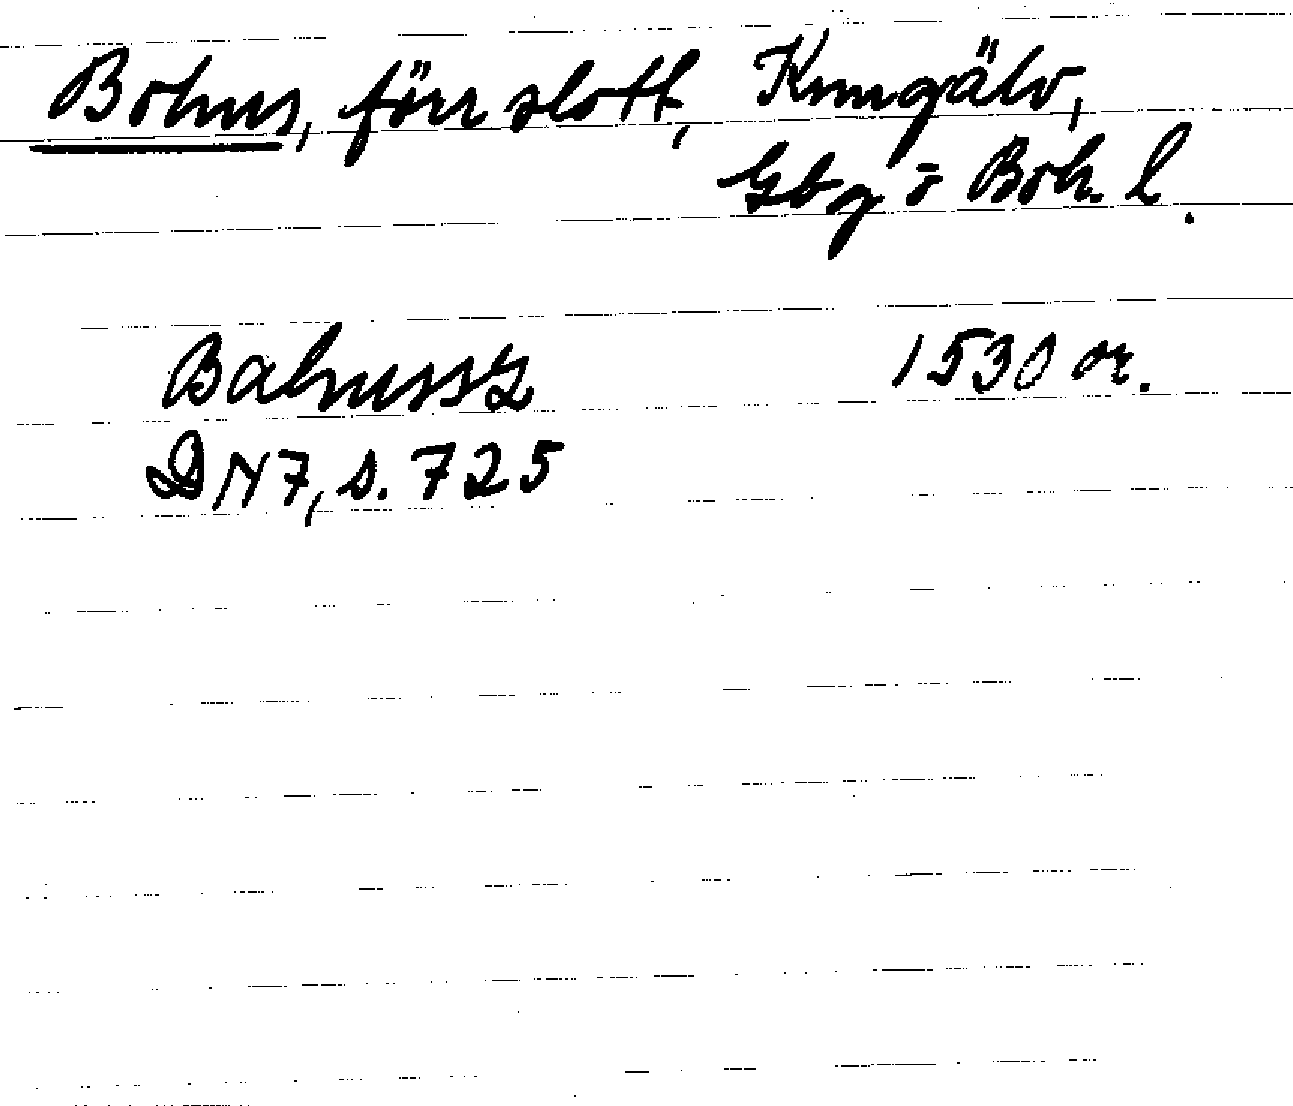 Bohus, förr slott, Kungälv,
Gbg o Boh. l.
Bahussz 1530 or.
DN 7, s. 725